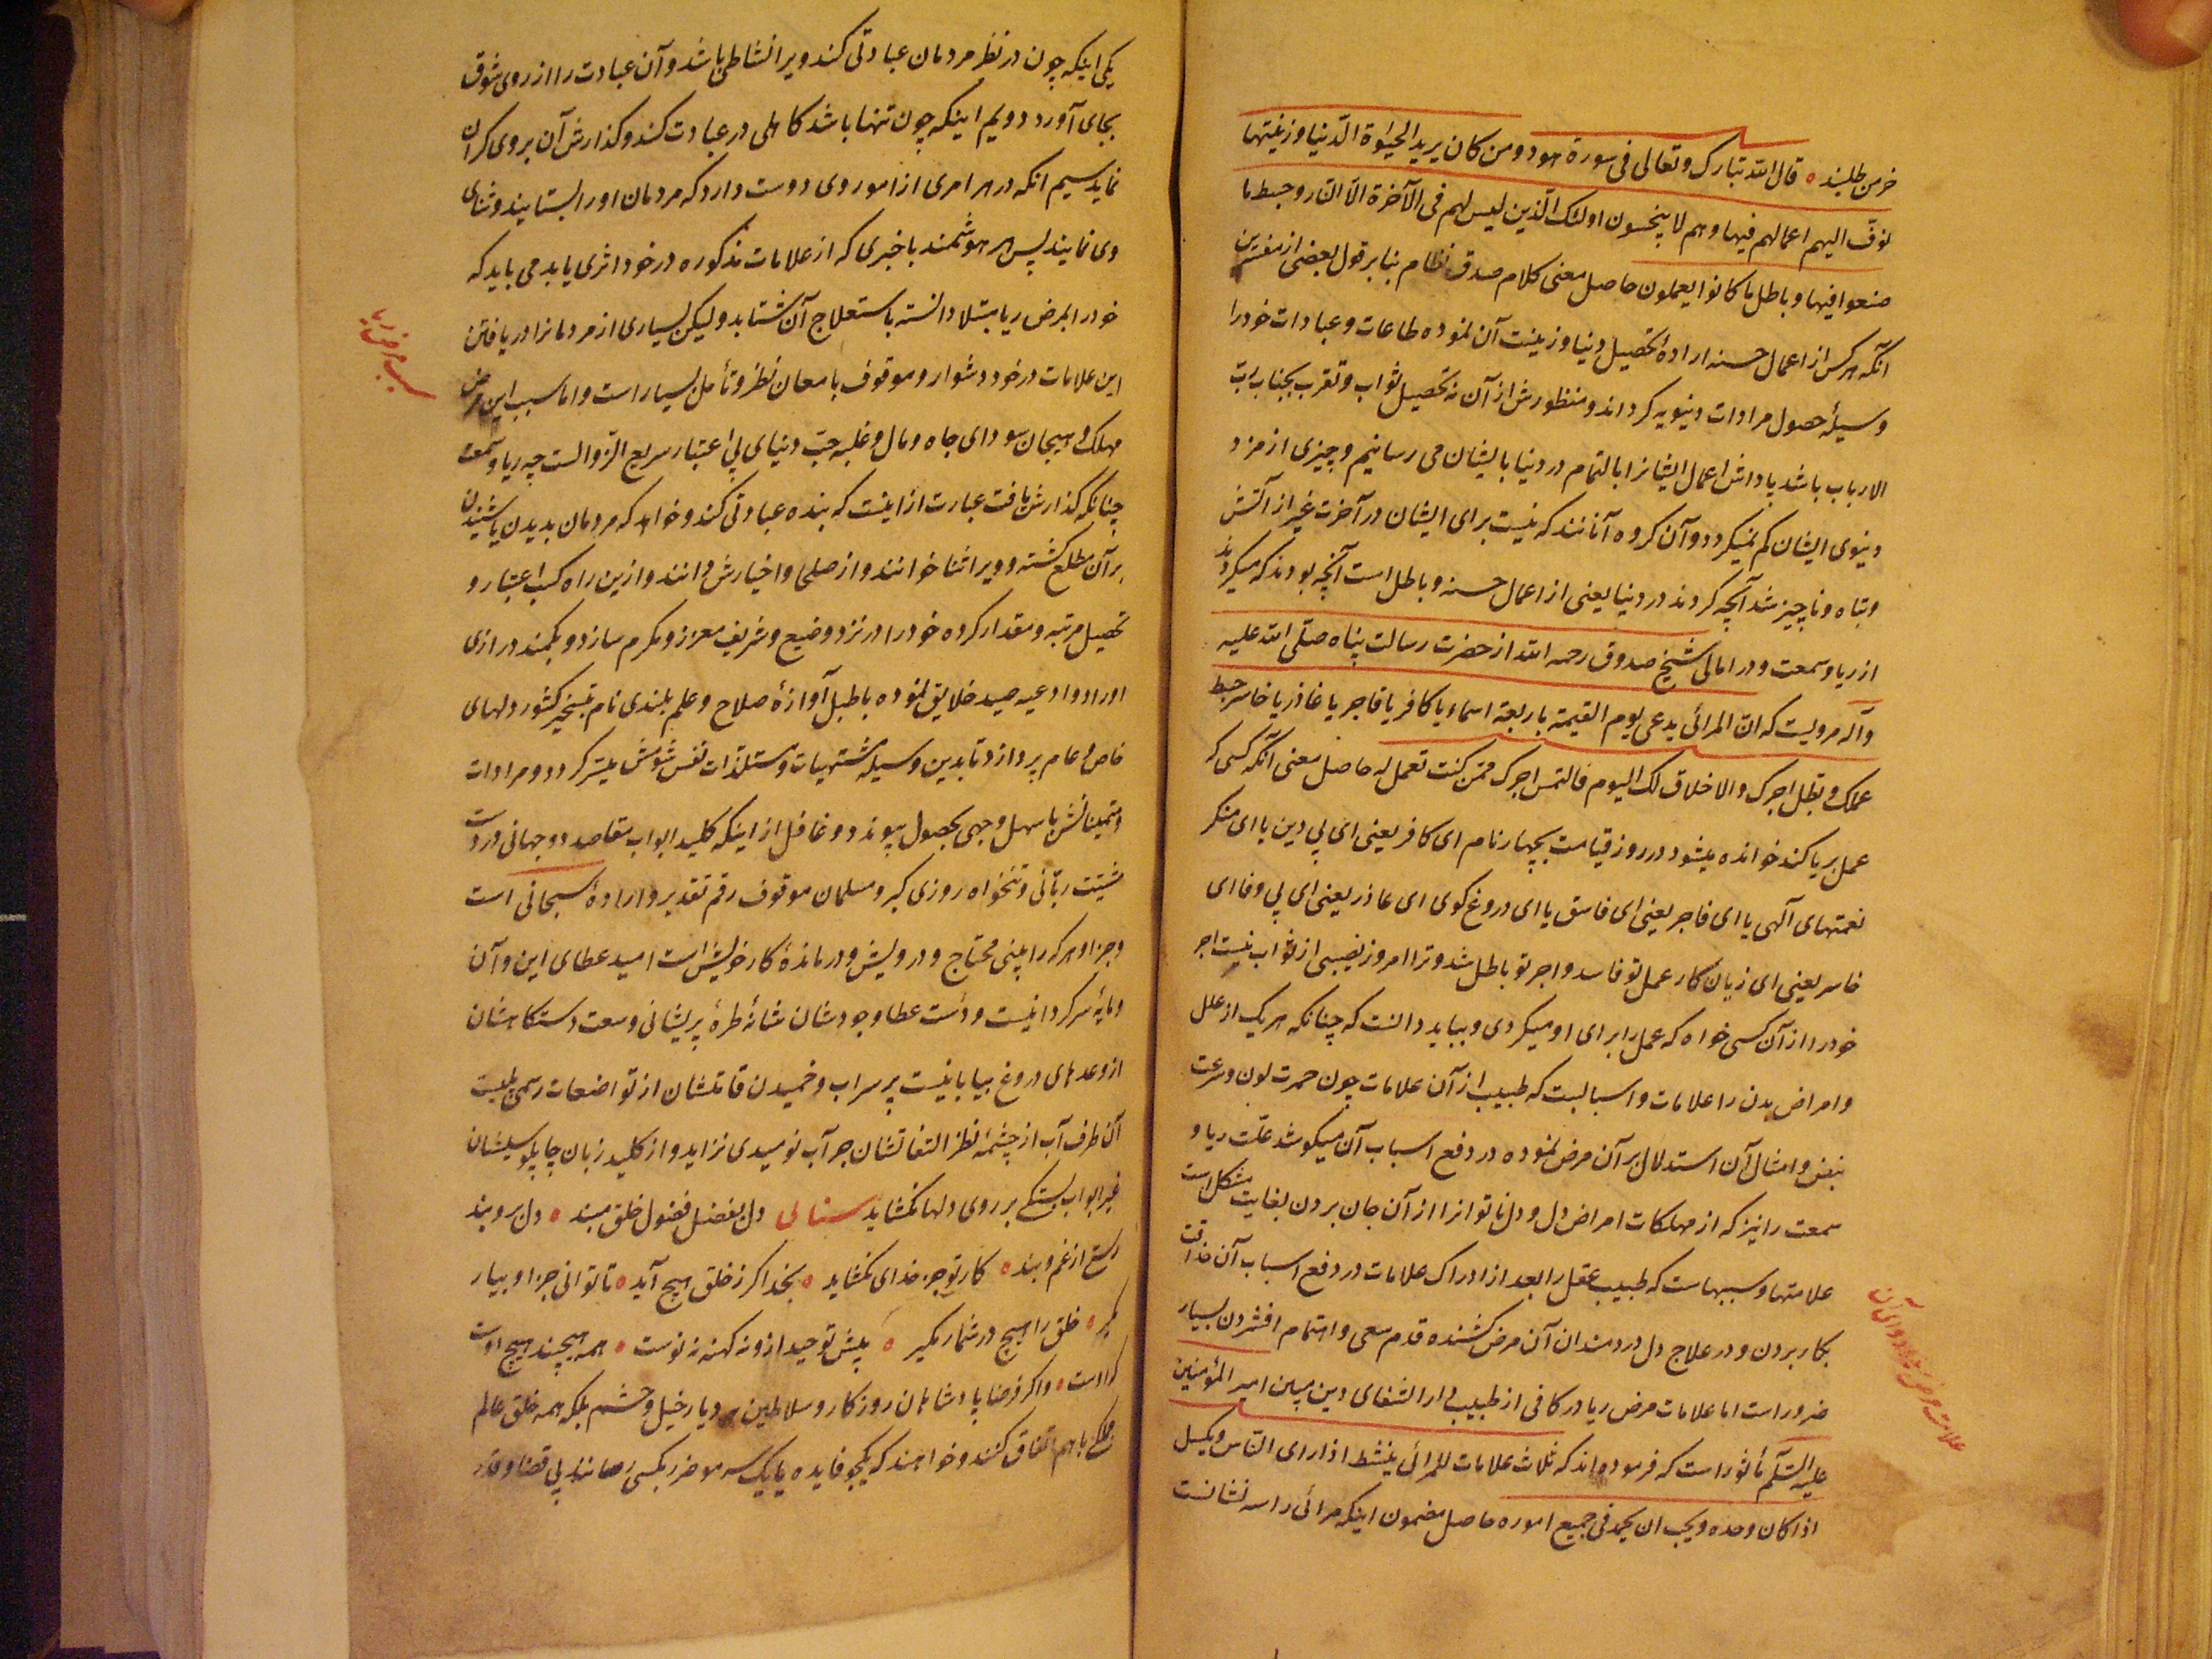 خرمن طلبند ٥ قال الله تبارک وتعالی فی سورة هود ومن کان یرید الحیٰوة الدّنیا وزینتها
نوفّ الیهم اعمالهم فیها وهم لا یبخسون اولئک الّذین لیس لهم فی الآخرة الّا النّار وحبط ما
صنعوا فیها وباطل ما کانوا یعملون حاصل معنی کلام صدق نظام بنا بر قول بعضی از مفسّرین
آنکه هرکس از اعمال حسنه ارادهٔ تحصیل دنیا وزینت آن نموده طاعات وعبادات خودرا
وسیلهٔ حصول مرادات دنیویه کرداند ومنظورش از آن نه تحصیل ثواب وتقرب بجناب ربّ
الارباب باشد پاداش اعمال ایشانرا بالتمام در دنیا بایشان می رسانیم وچیزی از مزد
دنیوی ایشان کم نمیکردد وآن کروه آنانند که نیست برای ایشان در آخرت غیر از آتش
وتباه وناچیز شد آنچه کردند در دنیا یعنی از اعمال حسنه وباطل است آنچه بودند که میکردند
از ریا وسمعت ودر امالی شیخ صدوق رحمه الله از حضرت رسالت پناه صلّی الله علیه
وآله مرویست که انّ المرائی یدعی یوم القیمة باربعة اسماء یا کافر یا فاجر یا غادر یا خاسر حبط
عملک وبطل اجرک ولا خلاق لک الیوم فالتمس اجرک ممّن کنت تعمل له حاصل معنی آنکه کسی که
عمل بریا کند خوانده میشود در روز قیامت بچهار نام ای کافر یعنی ای بی دین یا ای منکر
نعمتهای آلهی یا ای فاجر یعنی ای فاسق یا ای دروغ کوی ای غادر یعنی ای بی وفا ای
خاسر یعنی ای زیان کار عمل تو فاسد واجر تو باطل شد وترا امروز نصیبی از ثواب نیست اجر
خودرا از آن کسی خواه که عمل را برای او میکردی وبباید دانست که چنانکه هریک از علل
وامراض بدن را علامات واسبابست که طبیب از آن علامات چون حمرت لون وسرعت
نبض وامثال آن استدلال بر آن مرض نموده در دفع اسباب آن میکوشد علّت ریا و
سمعت را نیز که از مهلکات امراض دل ودل ناتوانرا از آن جان بردن بغایت مشکل است
علامتها وسببهاست که طبیب عقل را بعد از ادراک علامات در دفع اسباب آن حذاقت
بکار بردن ودر علاج دل دردمندان آن مرض کشنده قدم سعی واهتمام افشردن بسیار
ضرور است اما علامات مرض ریا در کافی از طبیب دار الشفای دین مبین امیر المؤمنین
علیه السّلم مأثور است که فرموده اند که ثلاث علامات للمرائی ینشط اذا رای النّاس ویکسل
اذا کان وحده ویحب ان یحمد فی جمیع اموره حاصل مضمون اینکه مرائی را سه نشانست
علامت مرض ریا ودوای آن
یکی اینکه چون در نظر مردمان عبادتی کند ویرا نشاطی باشد وآن عبادت را از روی شوق
بجای آورد دویم اینکه چون تنها باشد کاهلی در عبادت کند وکذارش آن بروی کران
نماید سیم انکه در هر امری از امور وی دوست دارد که مردمان اورا بستایند وثنای
وی نمایند پس هر هوشمند باخبری که از علامات مذکوره در خود اثری یابد می باید که
خودرا بمرض ریا مبتلا دانسته باستعلاج آن شتابد ولیکن بسیاری از مردمانرا دریافتن
این علامات در خود دشوار وموقوف بامعان نظر وتأمل بسیار است واما سبب این مرض
مهلک هیجان سودای جاه ومال وغلبه حبّ دنیای بی اعتبار سریع الزّوالست چه ریا وسمعت
چنانکه کذارش یافت عبارت از اینست که بنده عبادتی کند وخواهد که مردمان بدیدن یا شنیدن
بر آن مطلع کشته وویرا ثنا خوانند واز صلحا واخیارش دانند وازین راه کسب اعتبار و
تحصیل مرتبه ومقدار کرده خودرا در نزد وضیع وشریف معزز ومکرم سازد وبکمند درازی
اوراد وادعیه صید خلایق نموده باطبل آوازهٔ صلاح وعلم بلندی نام بتسخیر کشور دلهای
خاص وعام پردازد تا بدین وسیله مشتهیات ومستلذات نفس شومش میسّر کردد ومرادات
ومتمنیاتش باسهل وجهی بحصول پیوندد وغافل از اینکه کلید ابواب مقاصد دوجهانی در دست
مشیّت ربّانی وتنخواه روزی کبر ومسلمان موقوف رقم تقدیر وارادهٔ سبحانی است
وجز او هرکه را بینی محتاج ودرویش ودرماندهٔ کار خویش است امید عطای این وآن
ومایهٔ سرکردانیست ودست عطا وجودشان شانهٔ طرهٔ پریشانی وسعت دستکاهشان
از وعدهای دروغ بیابانیست پر سراب وخمیدن قامتشان از تواضعات رسمی
آن طرف آب از چشمهٔ نظر التفاتشان جز آب نومیدی نزاید واز کلید زبان چاپلوسیشان
غیر ابواب بستکی بر روی دلها نکشاید سنائی دل بفضل فضول خلق مبند ٥ دل برو بند
رستی از غم وبند ٥ کار تو جز خدای نکشاید ٥ بخدا کر ز خلق هیچ آید ٥ تا توانی جز او بیار
مکیر ٥ خلق را هیچ در شمار مکیر ٥ پیش توحید او نه کهنه نه نوست ٥ همه هیچند هیچ اوست
که اوست ٥ واکر فرضا پادشاهان روزکار وسلاطین هر دیار خیل وحشم بلکه همه خلق عالم
باهم اتفاق کنند وخواهند که یکجو فایده یا یک سر مو ضرر بکسی رسانند بی قضا وقدر
سبب مرض ریا